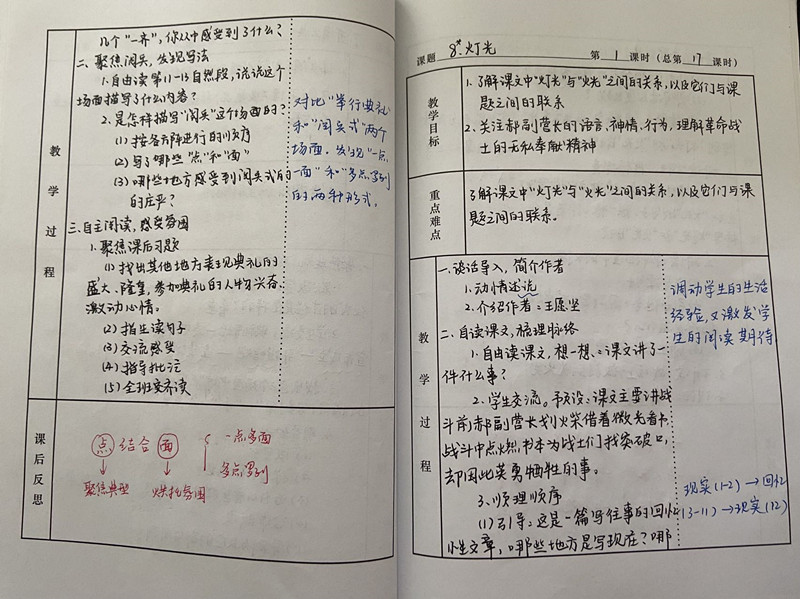 教学过程
几个“一齐”,你从中感受到了什么?
二、聚焦阅兵,发现写法
1.自由读第11-13自然段,说说这个
场面描写了什么内容?
2.是怎样描写“阅兵”这个场面的?
(1)按各方阵进行的顺序
(2)写了哪些“点”和“面”
(3)哪些地方感受到阅兵式的
的庄严?
三、自主阅读,感受氛围
1.聚焦课后习题
(1)找出其他地方表现典礼的
盛大、隆重,参加典礼的人物兴奋、
激动心情。
(2)指生读句子
(3)交流感受
(4)指导批注
(5)全班交齐读
对比“举行典礼”
和“阅兵式”两个
场面,发现“一点
一面”和“多点罗列”
的两种形式。
课后反思
点结合面
一点多面
多点罗列
聚焦典型
烘托氛围
课题 8*.灯光 第1课时(总第17课时)
教学目标
1.了解课文中“灯光”与“火光”之间的关系,以及它们与课
题之间的联系
2.关注郝副营长的语言、神情、行为,理解革命战
士的无私奉献精神
重点难点
了解课文中“灯光”与“火光”之间的关系,以及它们与课
题之间的联系。
教学过程
一、谈话导入,简介作者
1.动情述说
2.介绍作者:王愿坚
二、自读课文,梳理脉络
1.自由读课文,想一想:课文讲了一
件什么事?
2.学生交流。预设:课文主要讲战
斗前郝副营长划火柴借着微光看书,
战斗中点燃书本为战士们找突破口,
却因此英勇牺牲的事。
3.顺理顺序
(1)引导:这是一篇写往事的回忆
性文章,哪些地方是写现在?哪
调动学生的生活
经验,又激发学
生的阅读期待
现实(1-2)→回忆
(3-11)→现实(12)